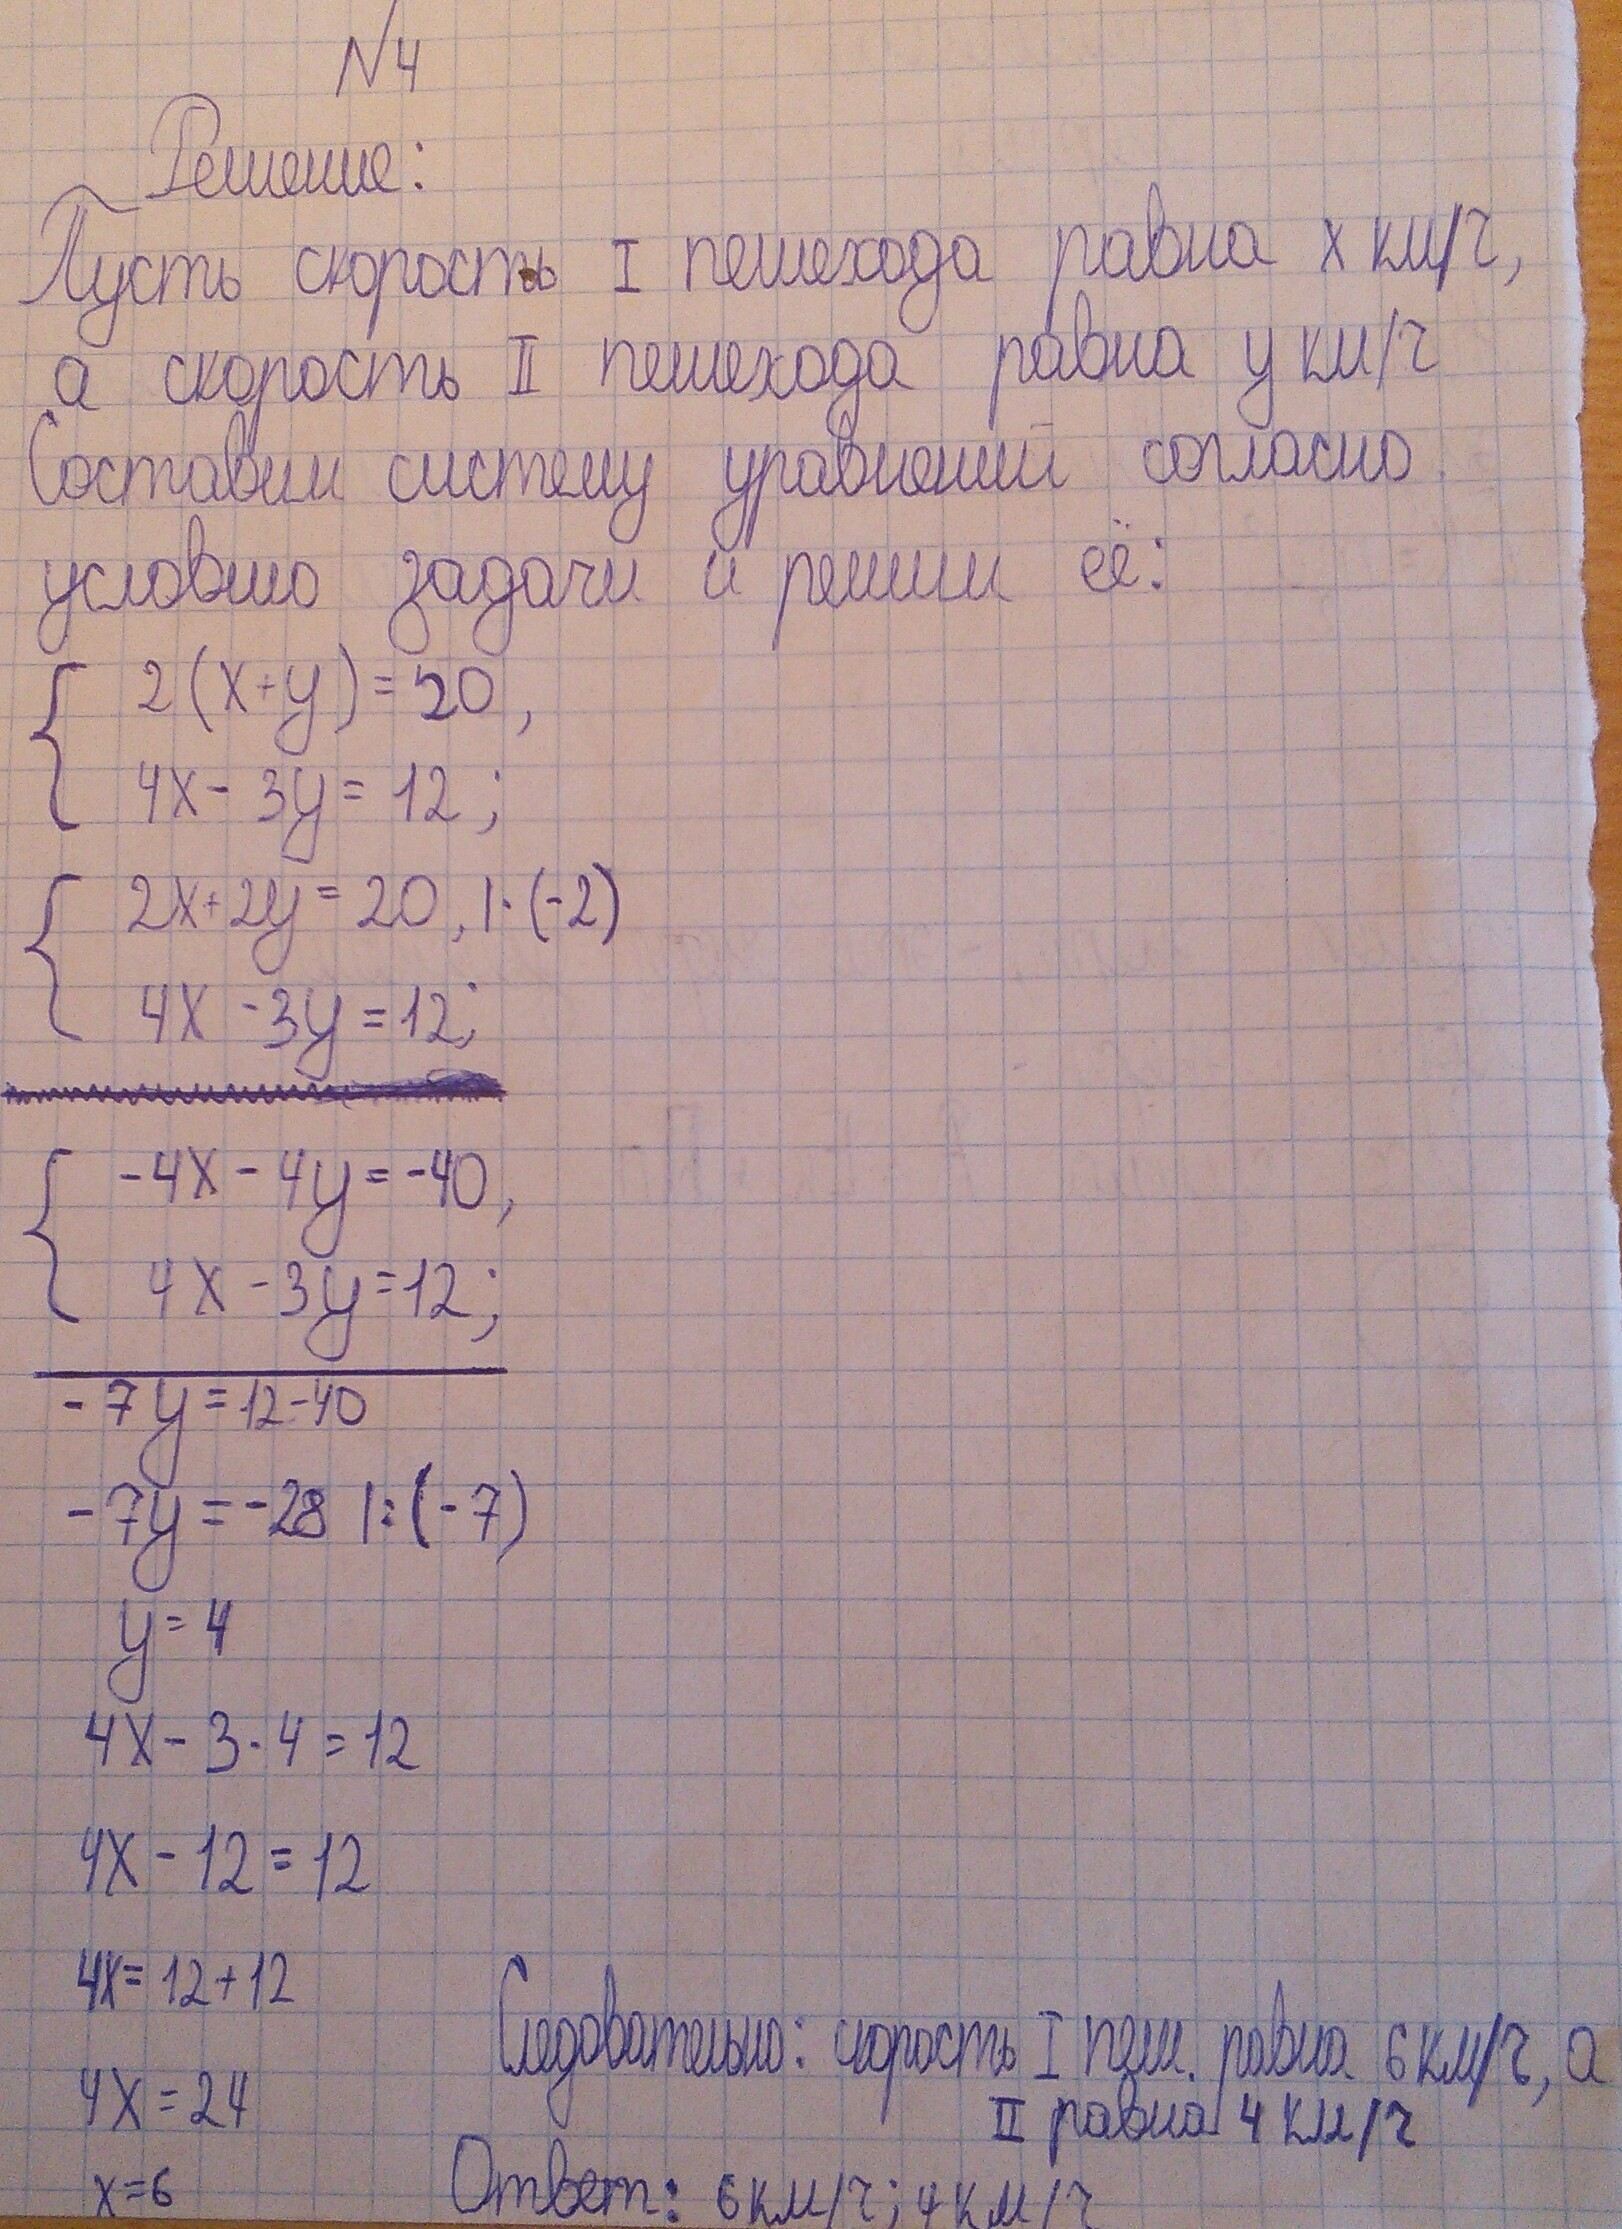 №4
Решение:
Пусть скорость I пешехода равна x км/ч,
а скорость II пешехода равна y км/ч
Составим систему уравнений согласно
условию задачи и решим её:
2(x+y)=20,
4x-3y=12;
2x+2y=20, |·(-2)
4x-3y=12;
-4x-4y=-40,
4x-3y=12;
-7y=12-40
-7y=-28 |:(-7)
y=4
4x-3·4=12
4x-12=12
4x=12+12
4x=24
x=6
Следовательно: скорость I пеш. равна 6 км/ч, а
II равна 4 км/ч
Ответ: 6 км/ч; 4 км/ч